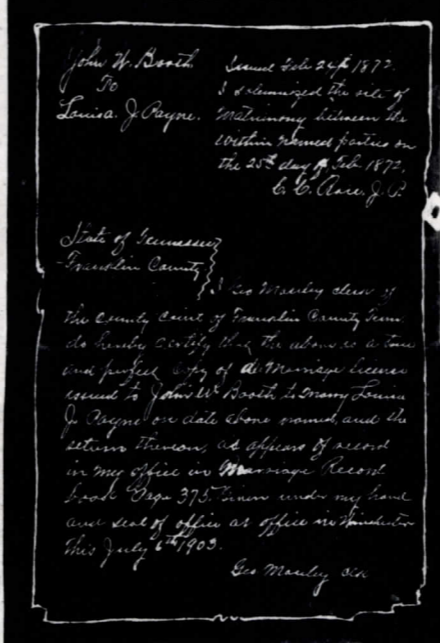 John W. Booth
To
Louisa. J. Payne.
Issued Feb 24th 1872.
I solemnized the rite of
Matrimony between the
within named parties on
the 25th day of Feb. 1872.
C. C. Rose, J. P.
State of Tennessee
Franklin County
I Geo Manley clerk of
the County Court of Franklin County Tenn
do hereby certify that the above is a true
and perfect copy of a Marriage license
issued to John W. Booth to marry Louisa
J. Payne on date above named, and the
return thereon, as appears of record
in my office in Marriage Record
book Page 375. Given under my hand
and seal of office at office in Winchester
This July 6th 1903.
Geo Manley clk